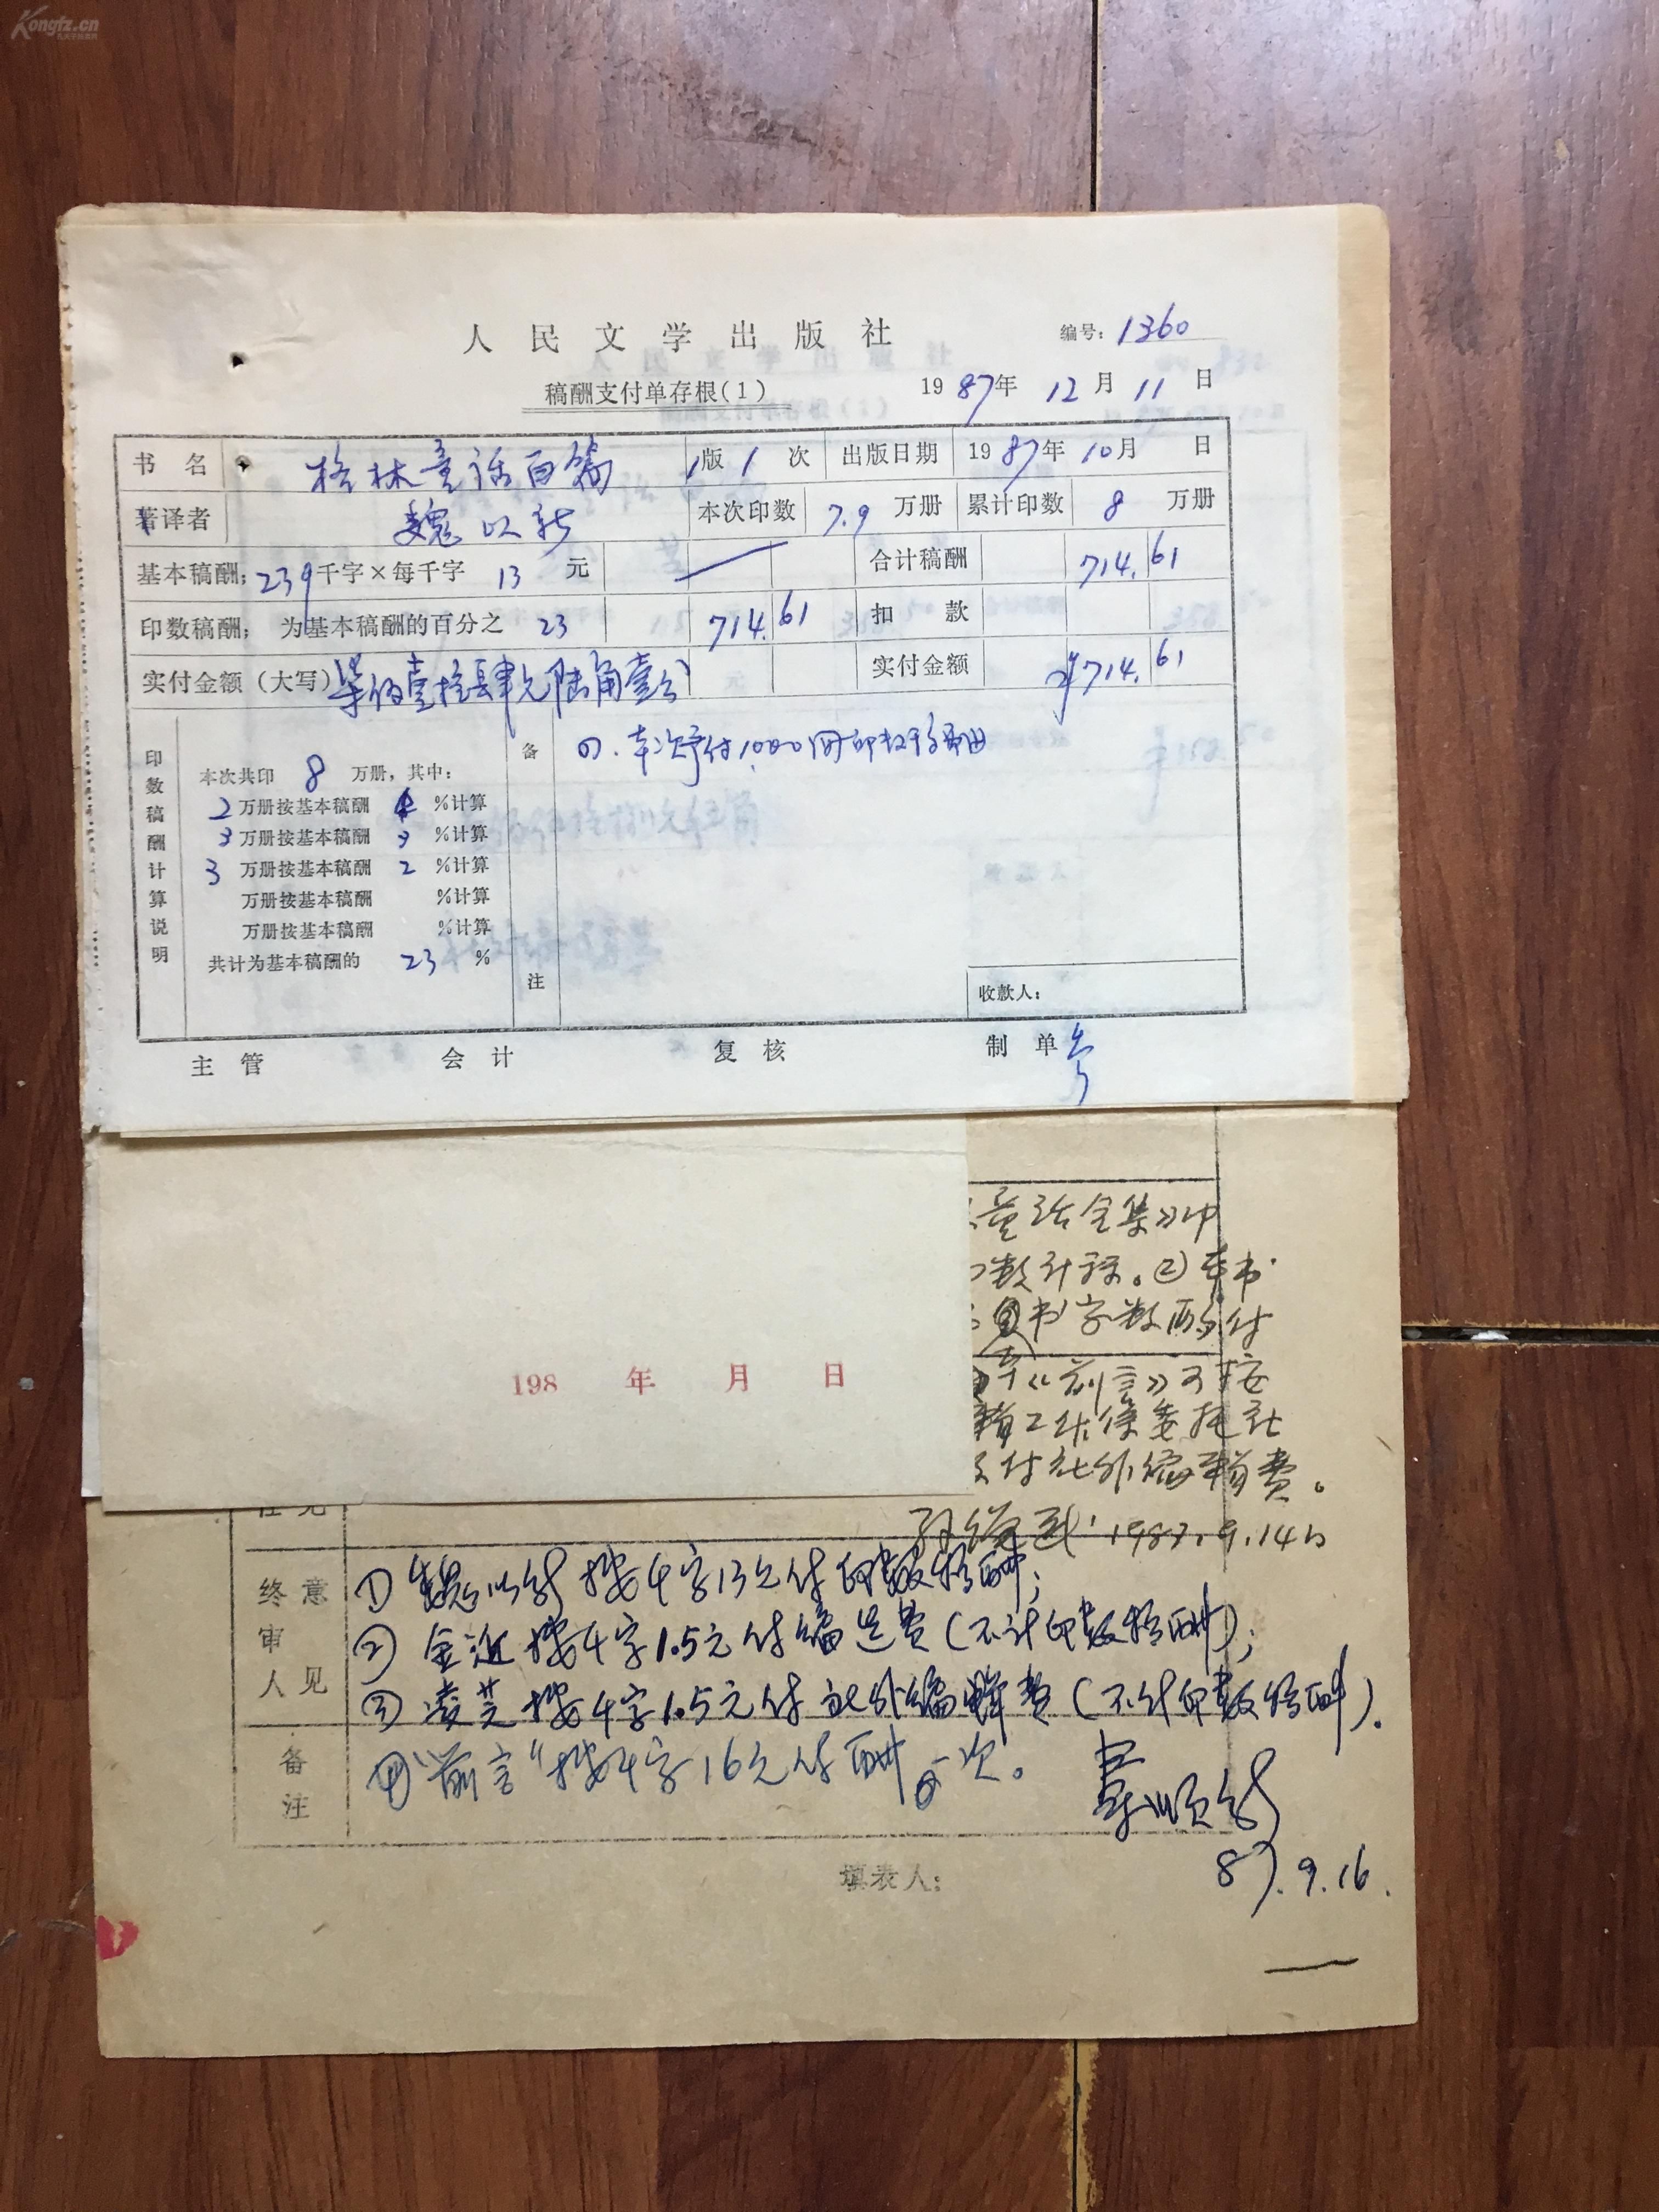 Kongfz.cn
人民文学出版社
编号：1360
稿酬支付单存根(1)
1987年 12月 11日
书名 格林童话百篇 1版1次 出版日期 1987年10月 日
著译者 魏以新 本次印数 7.9 万册 累计印数 8 万册
基本稿酬；239千字×每千字 13 元 合计稿酬 714.61
印数稿酬； 为基本稿酬的百分之 23 714.61 扣款
实付金额（大写）柒佰壹拾肆元陆角壹分 实付金额 ¥714.61
印数稿酬计算说明
本次共印 8 万册，其中：
2万册按基本稿酬 4 %计算
3万册按基本稿酬 3 %计算
3万册按基本稿酬 2 %计算
万册按基本稿酬 %计算
万册按基本稿酬 %计算
共计为基本稿酬的 23 %
备注
收款人：
主管 会计 复核 制单
童话全集》印
数计酬。②本书
书字数酌付
《前言》可按
辑工作系委托社
付社外编辑费。
1987.9.14日
198 年 月 日
终审人意见
①魏以新按千字13元付印数稿酬；
②金近按千字1.5元付编选费（不计印数稿酬）；
③凌芝按千字1.5元付社外编辑费（不计印数稿酬）。
④"前言"按千字16元付酬一次。
备注
秦顺新
87.9.16.
填表人：